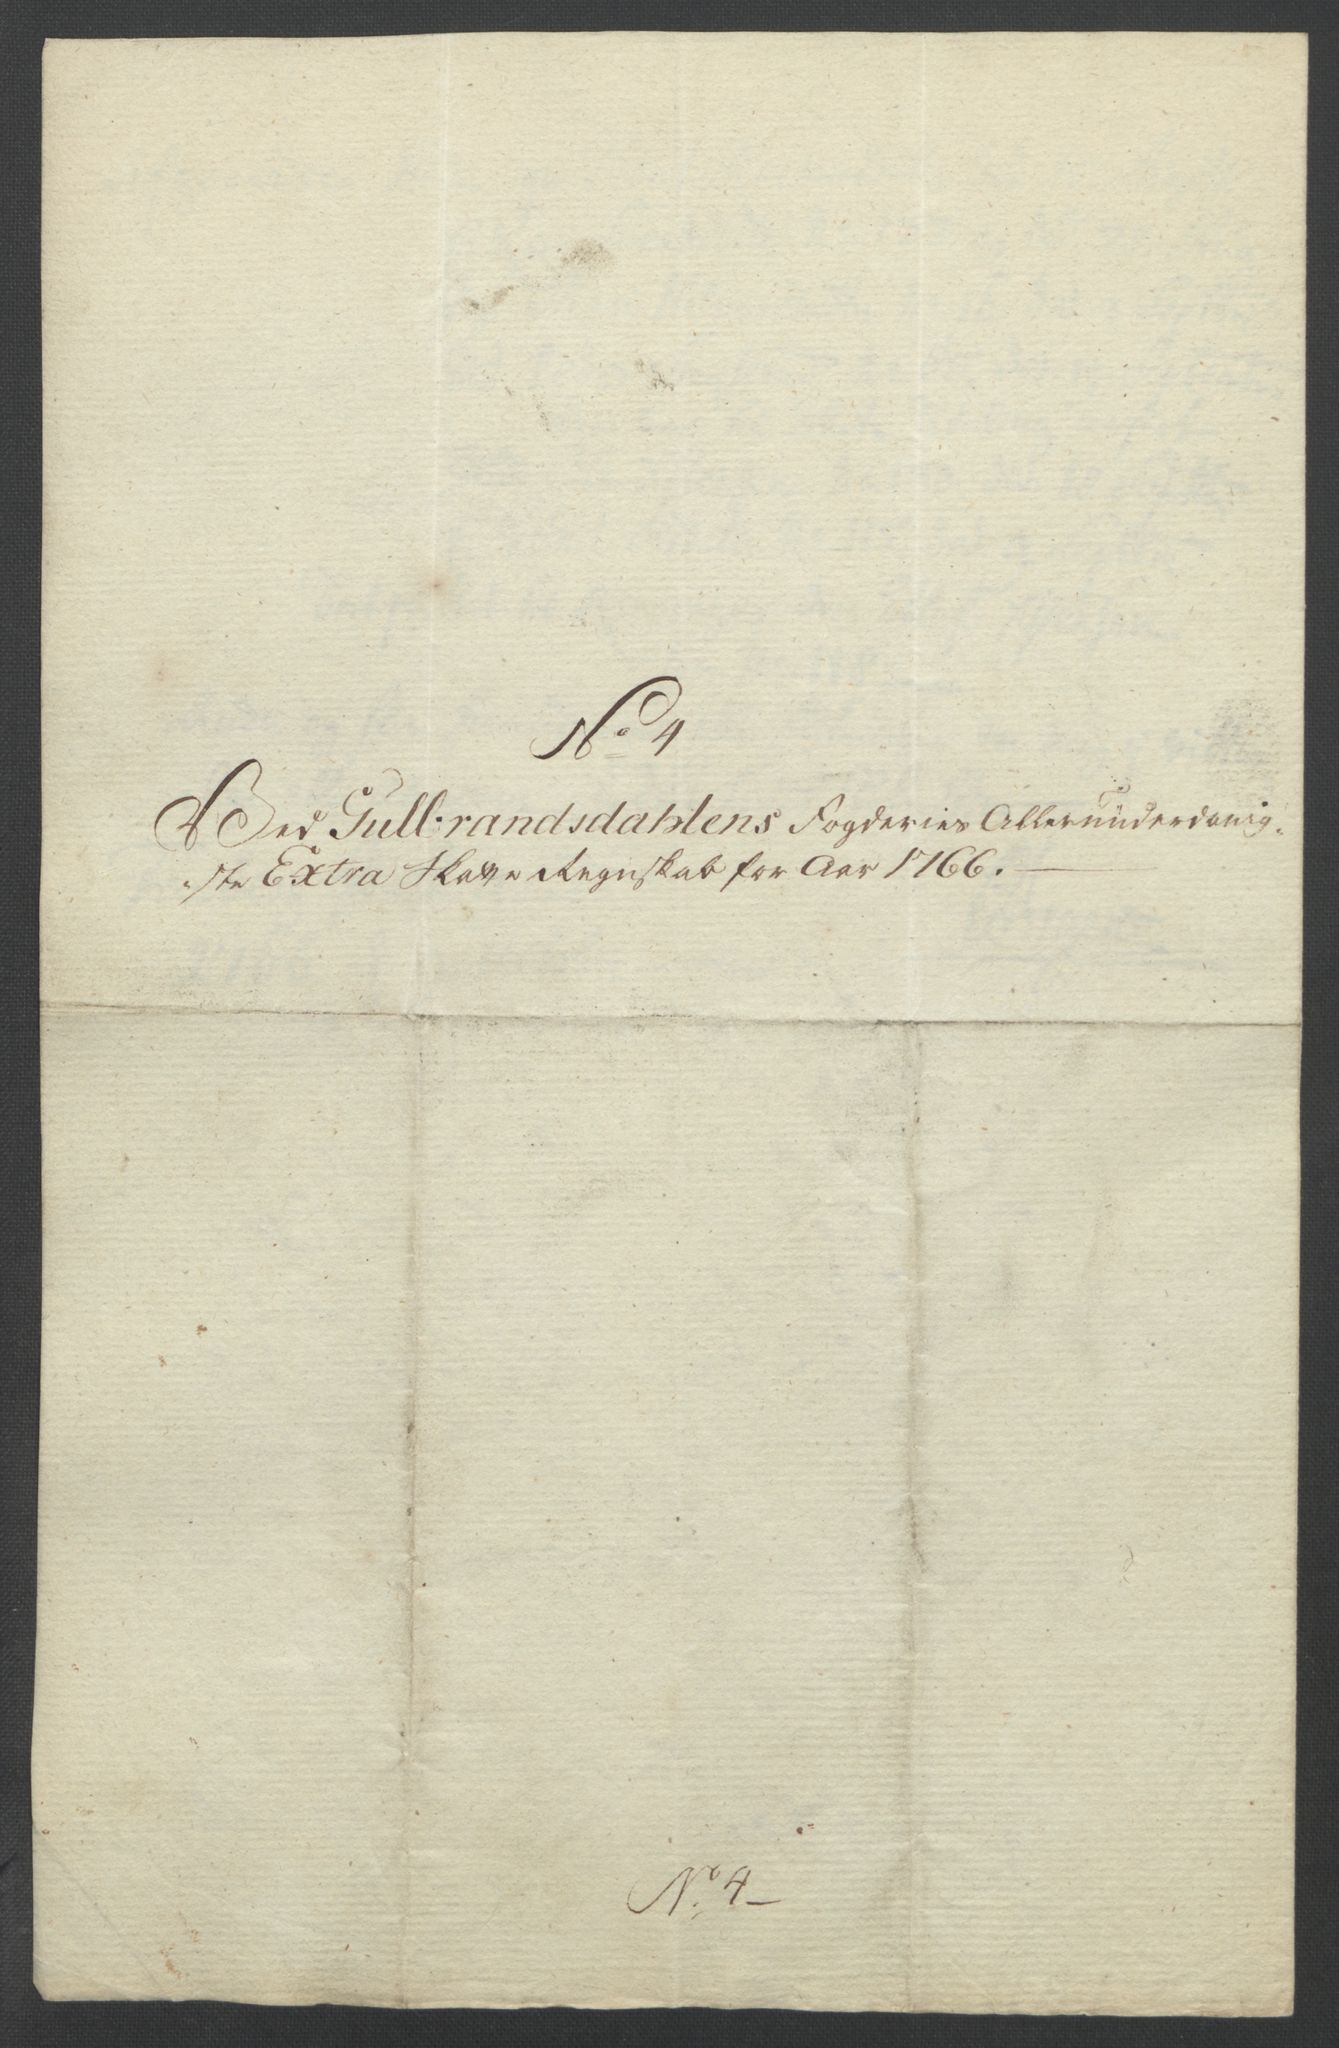 No 4
Ved Gullbrandsdahlens Fogderies Allerunderdanig-
ste Extra Skatte Regnskab for Aar 1766.
No. 4